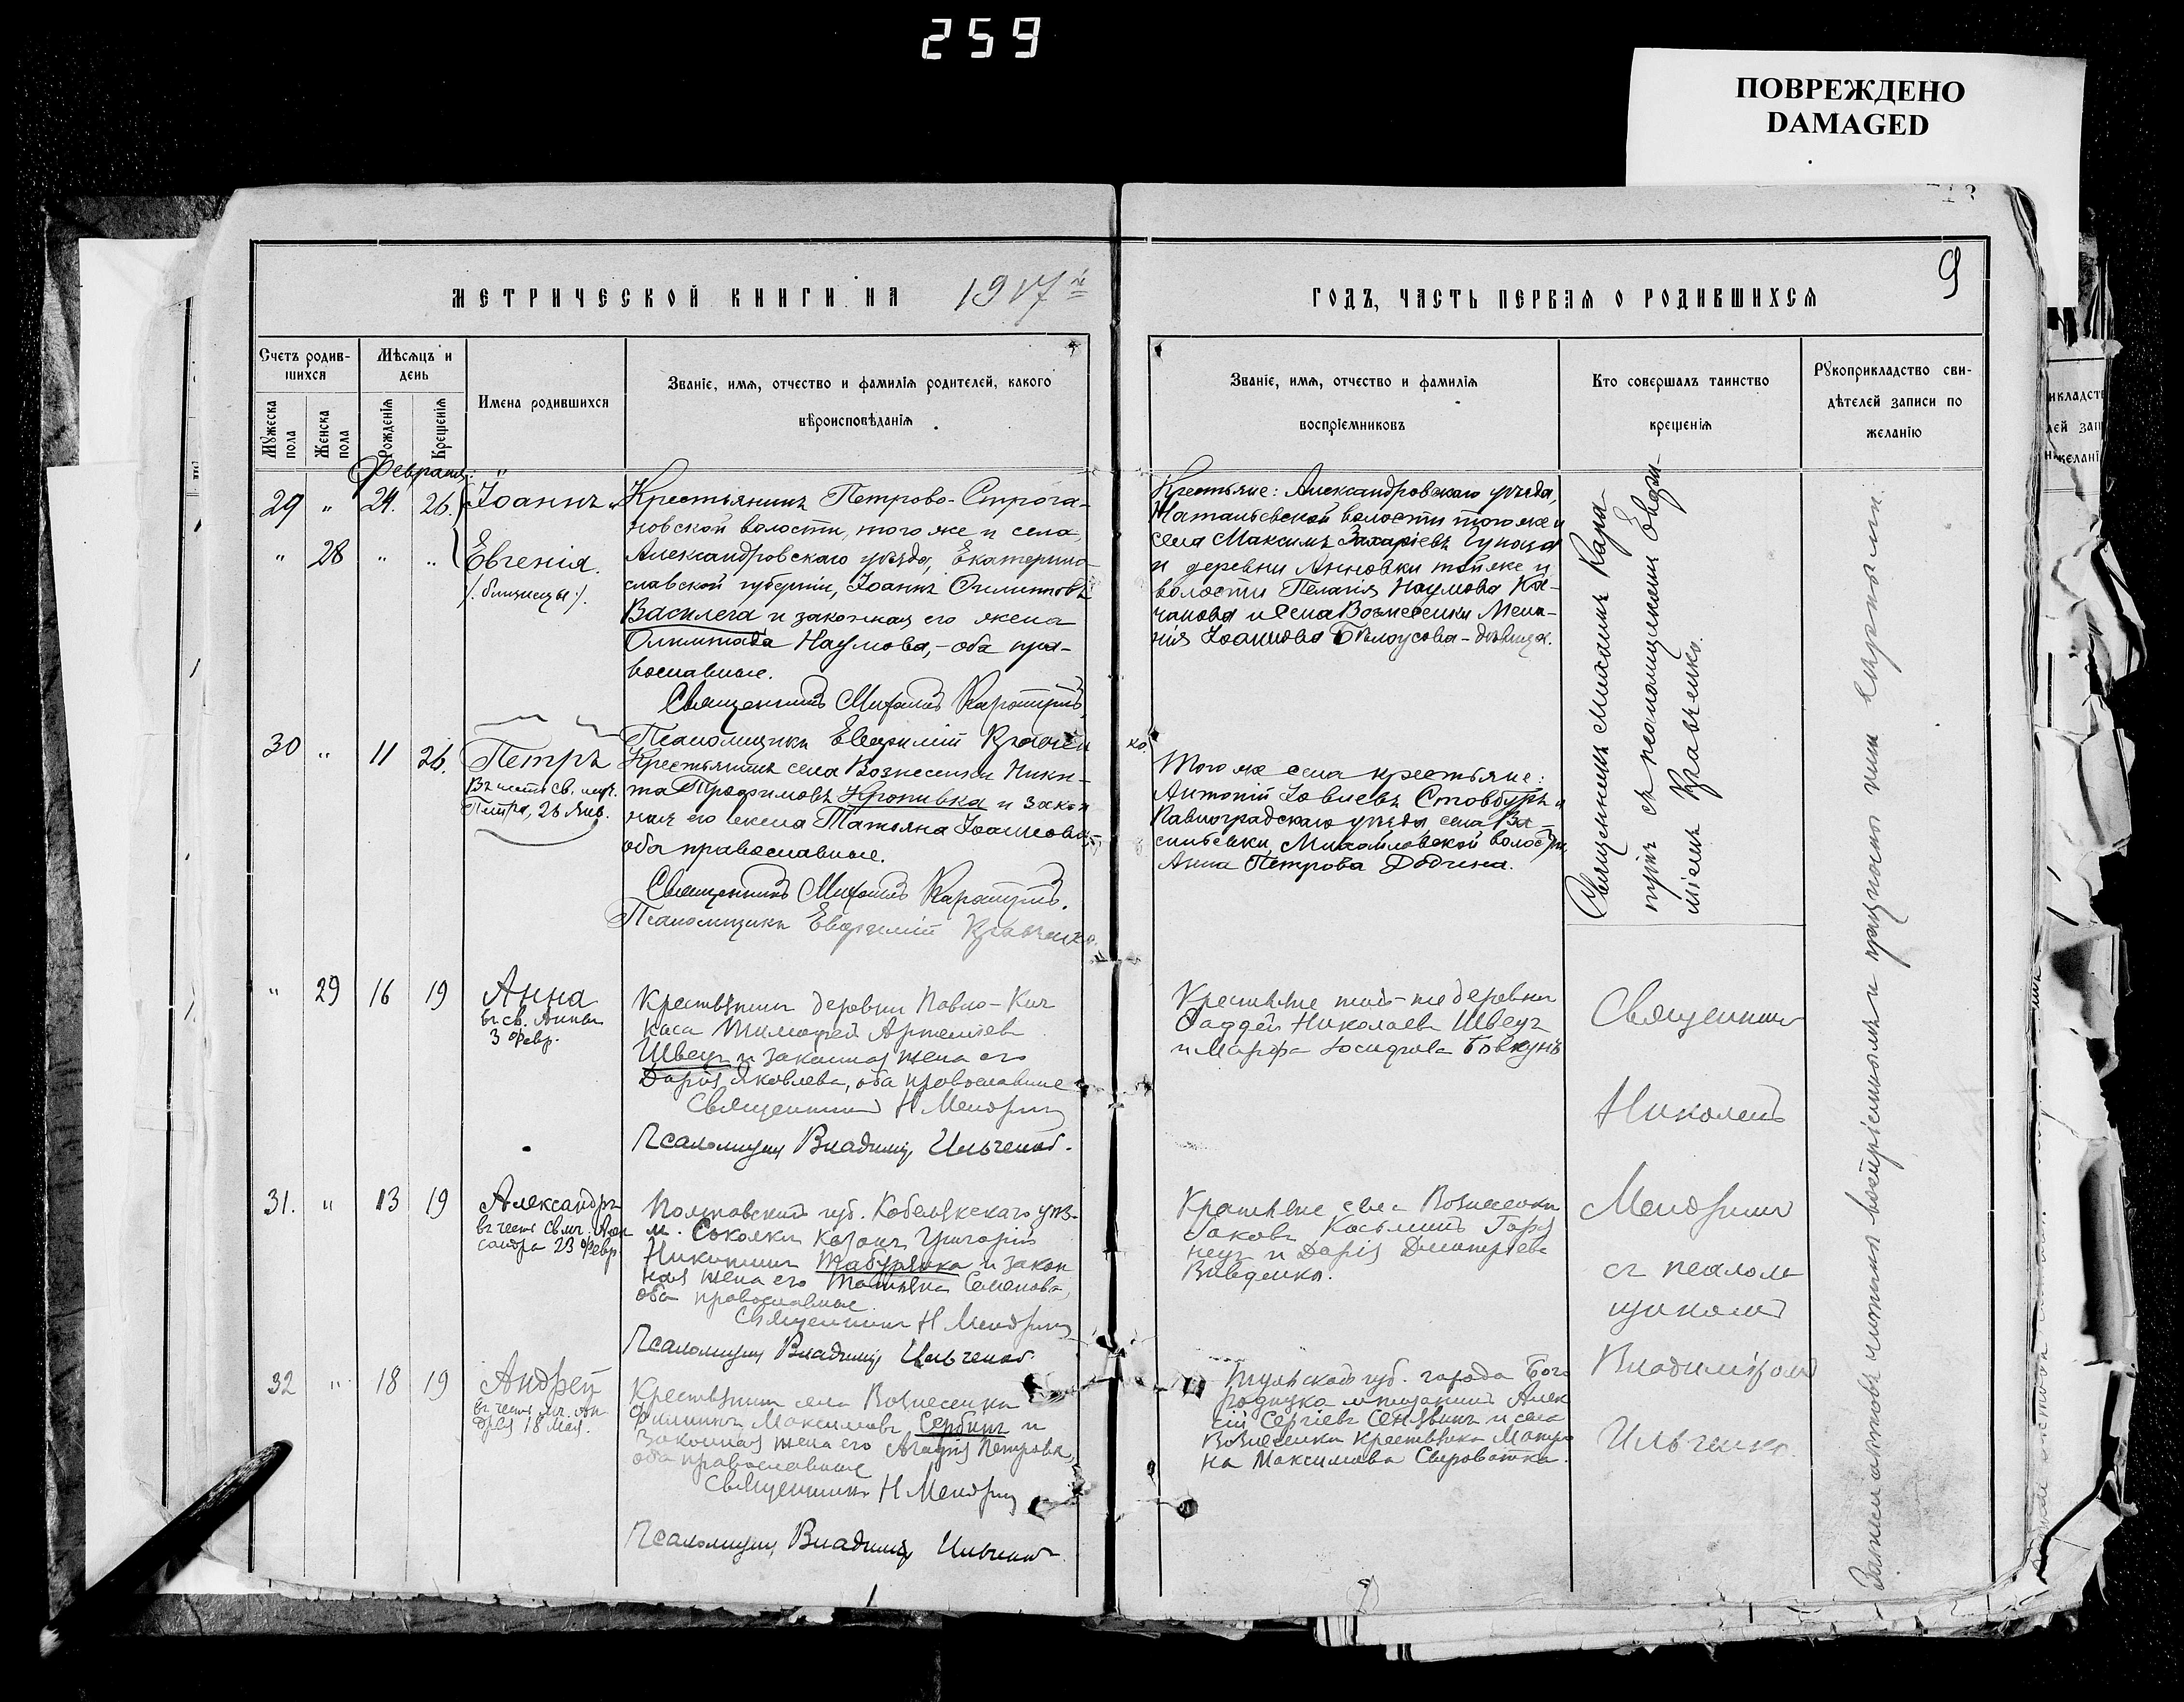 259
ПОВРЕЖДЕНО
DAMAGED
9
МЕТРИЧЕСКОЙ КНИГИ НА 1917й
ГОДЪ, ЧАСТЬ ПЕРВАЯ О РОДИВШИХСЯ
Счетъ родив-
шихся
Мужеска пола
Женска пола
Мѣсяцъ и
день
Рожденія
Крещенія
Имена родившихся
Званіе, имя, отчество и фамилія родителей, какого
вѣроисповѣданія
Званіе, имя, отчество и фамилія
воспріемниковъ
Кто совершалъ таинство
крещенія
Рукоприкладство сви-
дѣтелей записи по
желанію
Февраля:
29 " 24. 26. Іоаннъ и
" 28 " " Евгенія.
/. близнецы ./.
Крестьянинъ Петрово-Строга-
новской волости, того же и села,
Александровскаго уѣзда, Екатерино-
славской губерніи, Іоаннъ
Василега и законная его жена
Олимпіада Наумова,- оба пра-
вославные.
Священникъ Михаилъ
Псаломщикъ Евфимій Кравченко.
Крестьяне: Александровскаго уѣзда,
Натальевской волости того же и
села Максимъ Захаріевъ
и деревни Анновки той же и
волости Пелагія Наумова Ка-
чанова и села Вознесенки Мела-
нія Іоаннова Бѣлоусова - дѣвица.
Священникъ Михаилъ Кара-
съ псаломщикомъ Евфи-
міемъ Кравченко.
30 " 11 26. Петръ
Въ честь св. муч.
Петра, 26 Янв.
Крестьянинъ села Вознесенки Ники-
та Трофимовъ Кропивка и закон
ная его жена Татьяна Іоаннова,-
оба православные.
Священникъ Михаилъ
Псаломщикъ Евфимій Кравченко.
Того же села крестьяне:
Антоній Іовлевъ Стовбуръ и
Павлоградскаго уѣзда села Ва-
сильевки, Михайловской волости
Анна Петрова Додина.
" 29 16 19 Анна
въ св. Анны
3 Февр.
Крестьянинъ деревни Павло-Кич
каса Тимофей Артемьевъ
Швецъ и законная жена его
Дарія Яковлева, оба православные
Священникъ Н Мендринъ
Псаломщикъ Владиміръ Ильченко.
Крестьяне той-же деревни
Фаддей Николаевъ Швецъ
и Марфа Іосифова Бовкунъ
Священникъ
Николай
Мендринъ
съ псалом
щикомъ
Владиміромъ
Ильченко.
31. " 13 19 Александръ
въ честь св. мч. Алек
сандра 23 Февр.
Полтавской губ. Кобелякскаго уѣз.
м. Соколки казакъ Григорій
Никитинъ Табурянка и закон
ная жена его Татьяна Семенова,
оба православные.
Священникъ Н Мендринъ
Псаломщикъ Владиміръ Ильченко.
Крестьяне села Вознесенки
Іаковъ Косьминъ
и Дарія Дмитріева
Вивденко.
32 " 18 19 Андрей
въ честь мч. Ан
дрея 18 Мая.
Крестьянинъ села Вознесенки
Филиппъ Максимовъ Сербинъ и
законная жена его Агафія Петрова,
оба православные
Священникъ Н Мендринъ
Псаломщикъ Владиміръ Ильченко.
Тульской губ. города Бого
родицка мѣщанинъ Алек
сій Сергіевъ Сенявинъ и села
Вознесенки крестьянка Матро
на Максимова Сыроватка.